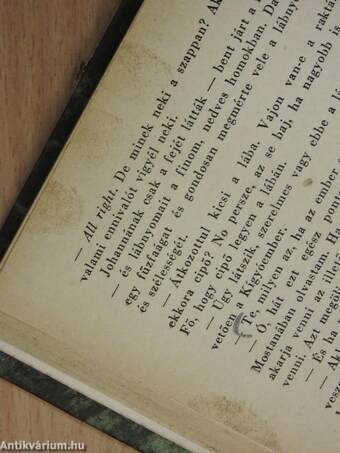 — All right. De minek neki a szappan? Ak
valami ennivalót vigyél neki.
Johannának csak a fejét látták — bent járt a
— és lábnyomait a finom, nedves homokban. Da
egy fűzfaágat és gondosan megmérte vele a lábny
és szélességét.
— Átkozottul kicsi a lába. Vajon van-e a raktá
ekkora cipő? No persze, az se baj, ha nagyobb is
Fő, hogy cipő legyen a lábán.
— Úgy látszik, szerelmes vagy ebbe a lá
verően a Kígyóember.
— Te, milyen az, ha az ember
— Ó, hát ezt egész pont
Mostanában olvastam. Ha
akarja venni az ille
venni. Azt megöl
— És ha
— Akk
vesz
Antikvárium.hu
Antikvárium.hu